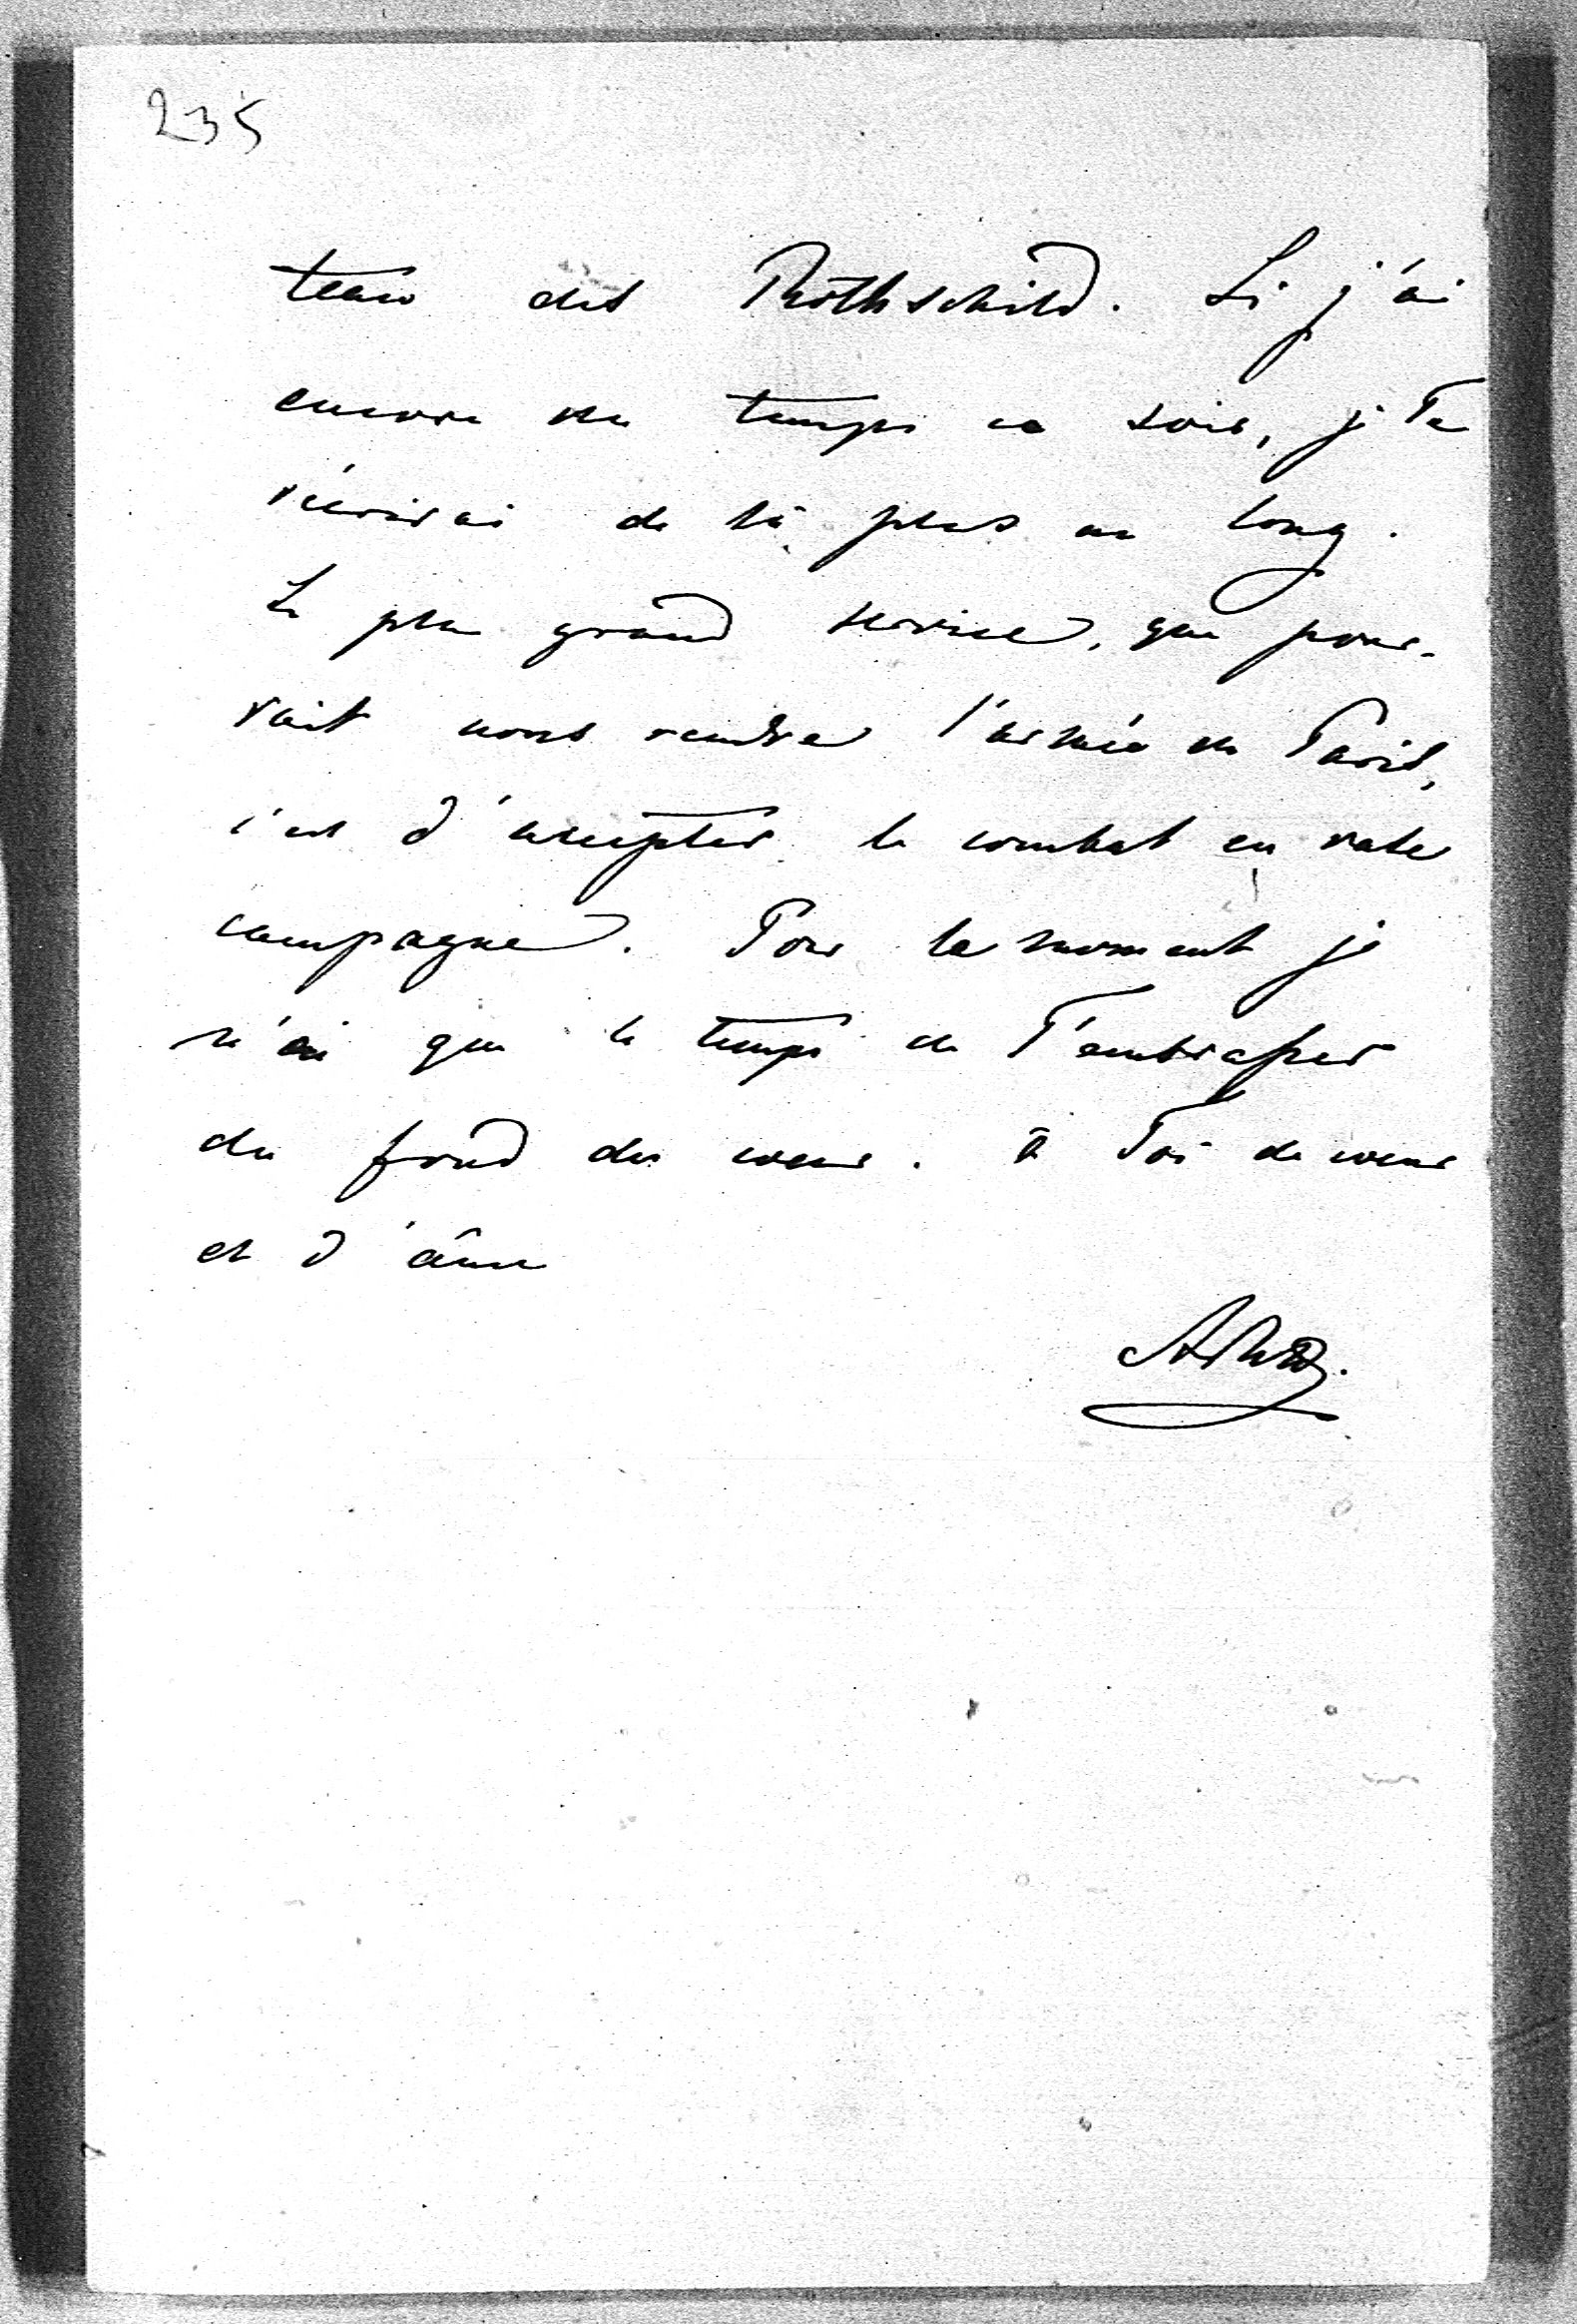 235
teau des Rothschild. Si j'ai
encore du temps ce soir, je Te
récrirai de là plus au long.
Le plus grand service, que pour-
rait nous rendre l'armée de Paris,
c'est d'accepter le combat en rase
campagne. Pour le moment je
n'ai que le temps de T'embrasser
du fond du coeur. à Toi de coeur
et d'âme